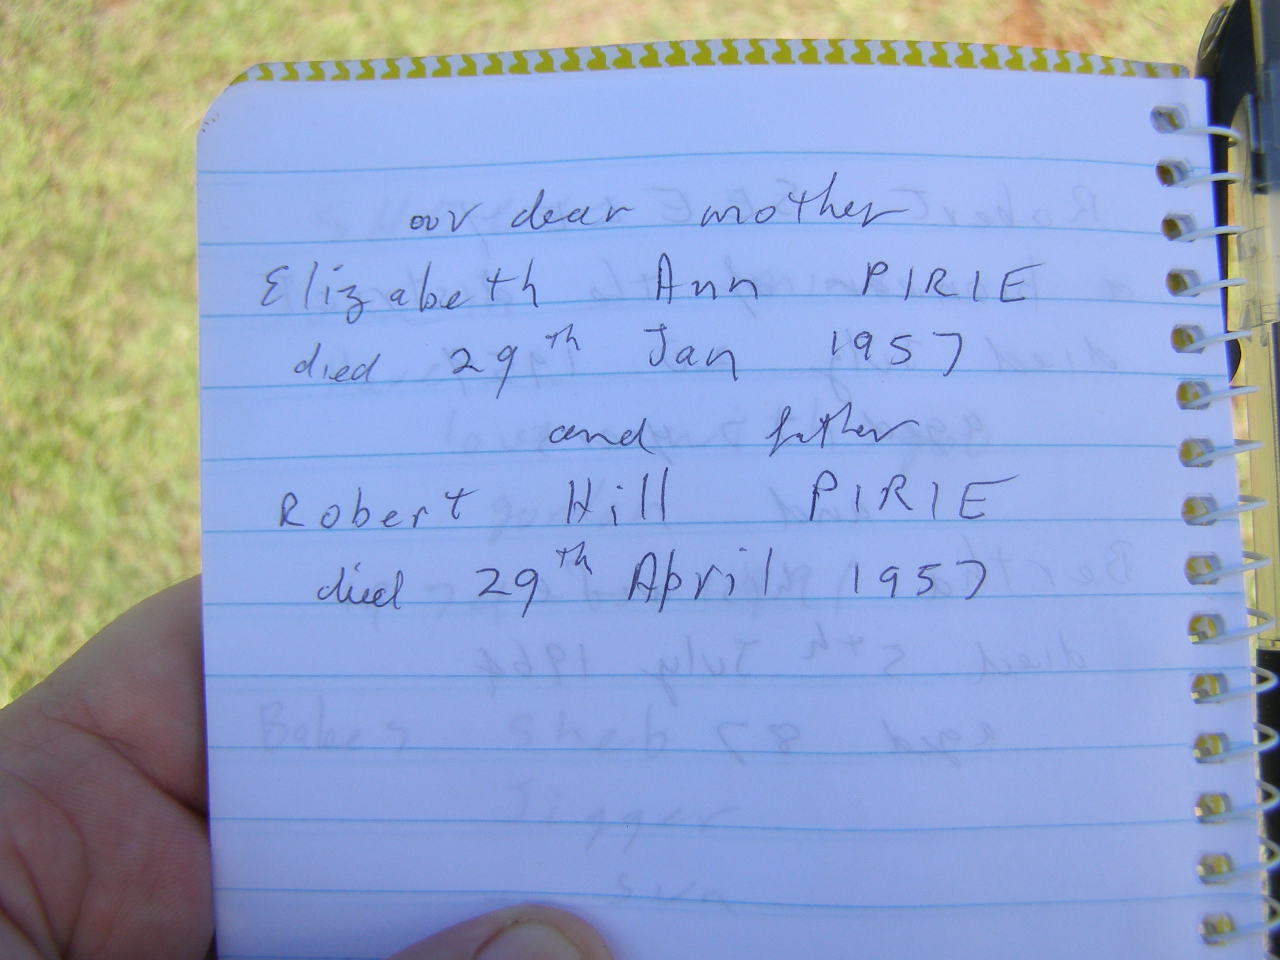 our dear mother
Elizabeth Ann PIRIE
died 29th Jan 1957
and father
Robert Hill PIRIE
died 29th April 1957